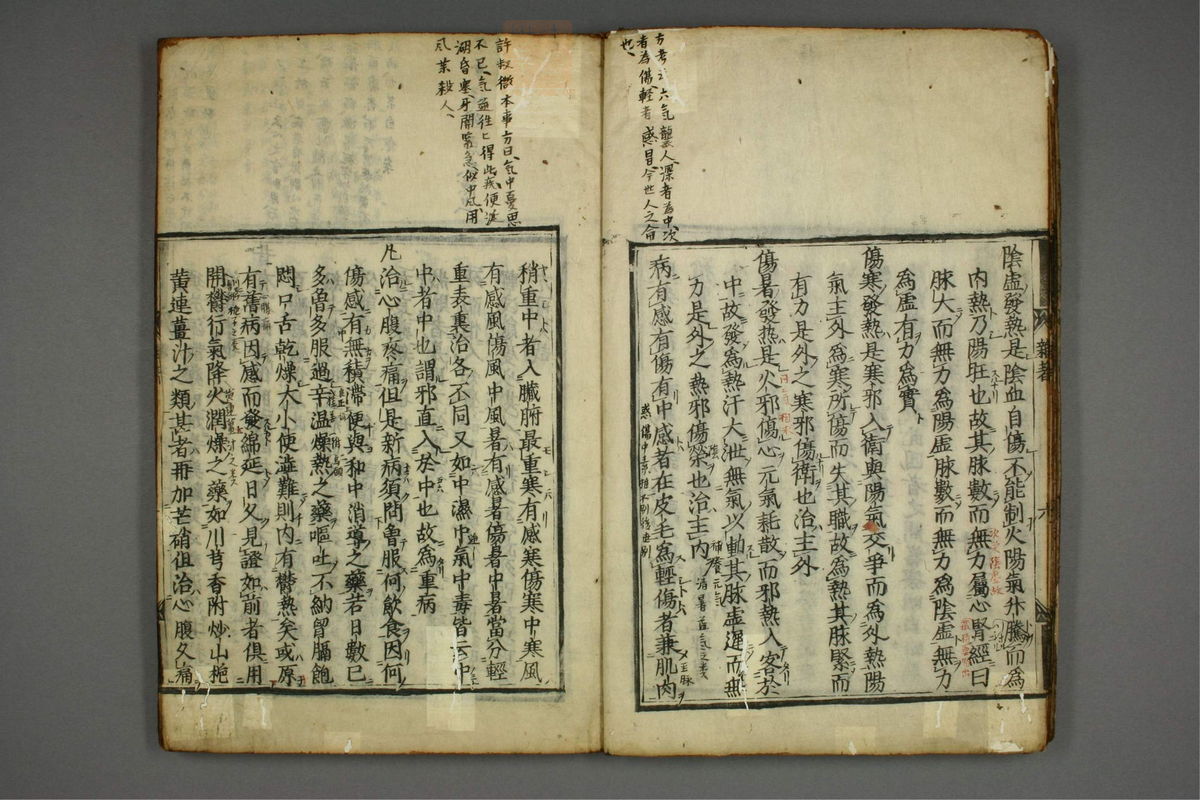 方考云六气襲人深者為中次
者為傷軽者感冒今世人之命
也
陰虛發熱是陰血自傷不能制火陽氣升騰而爲
内熱乃陽旺也故其脉數而無力屬心腎經曰
脉大而無力爲陽虛脉數而無力爲陰虛無力
爲虛有力爲實
傷寒發熱是寒邪入衛與陽氣交爭而爲外熱陽
氣主外爲寒所傷而失其職故爲熱其脉緊而
有力是外之寒邪傷衛也治主外
傷暑發熱是火邪傷心元氣耗散而邪熱入客於
中故發爲熱汗大泄無氣以動其脉虛遲而無
力是外之熱邪傷榮也治主内
補養元氣
清暑益氣
病有感有傷有中感者在皮毛爲輕傷者兼肌肉
雜著
六
許叔微本事方曰气中憂思
不已气
得此疾便涎
潮昏塞牙關緊急似中風用
風薬殺人
稍重中者入臟腑最重寒有感寒傷寒中寒風
有感風傷風中風暑有感暑傷暑中暑當分輕
重表裏治各不同又如中濕中氣中毒皆云中
中者中也謂邪直入於中也故爲重病
凡治心腹疼痛但是新病須問曾服何飲食因何
傷感有無積滯便與和中消導之藥若日數已
多曾多服過辛温燥熱之藥嘔吐不納胷膈飽
悶口舌乾燥大小便澁難則内有鬱熱矣或原
有舊病因感而發綿延日久見證如前者俱用
開鬱行氣降火潤燥之藥如川芎香附炒山梔
黄連薑汁之類甚者再加芒硝但治心腹久痛